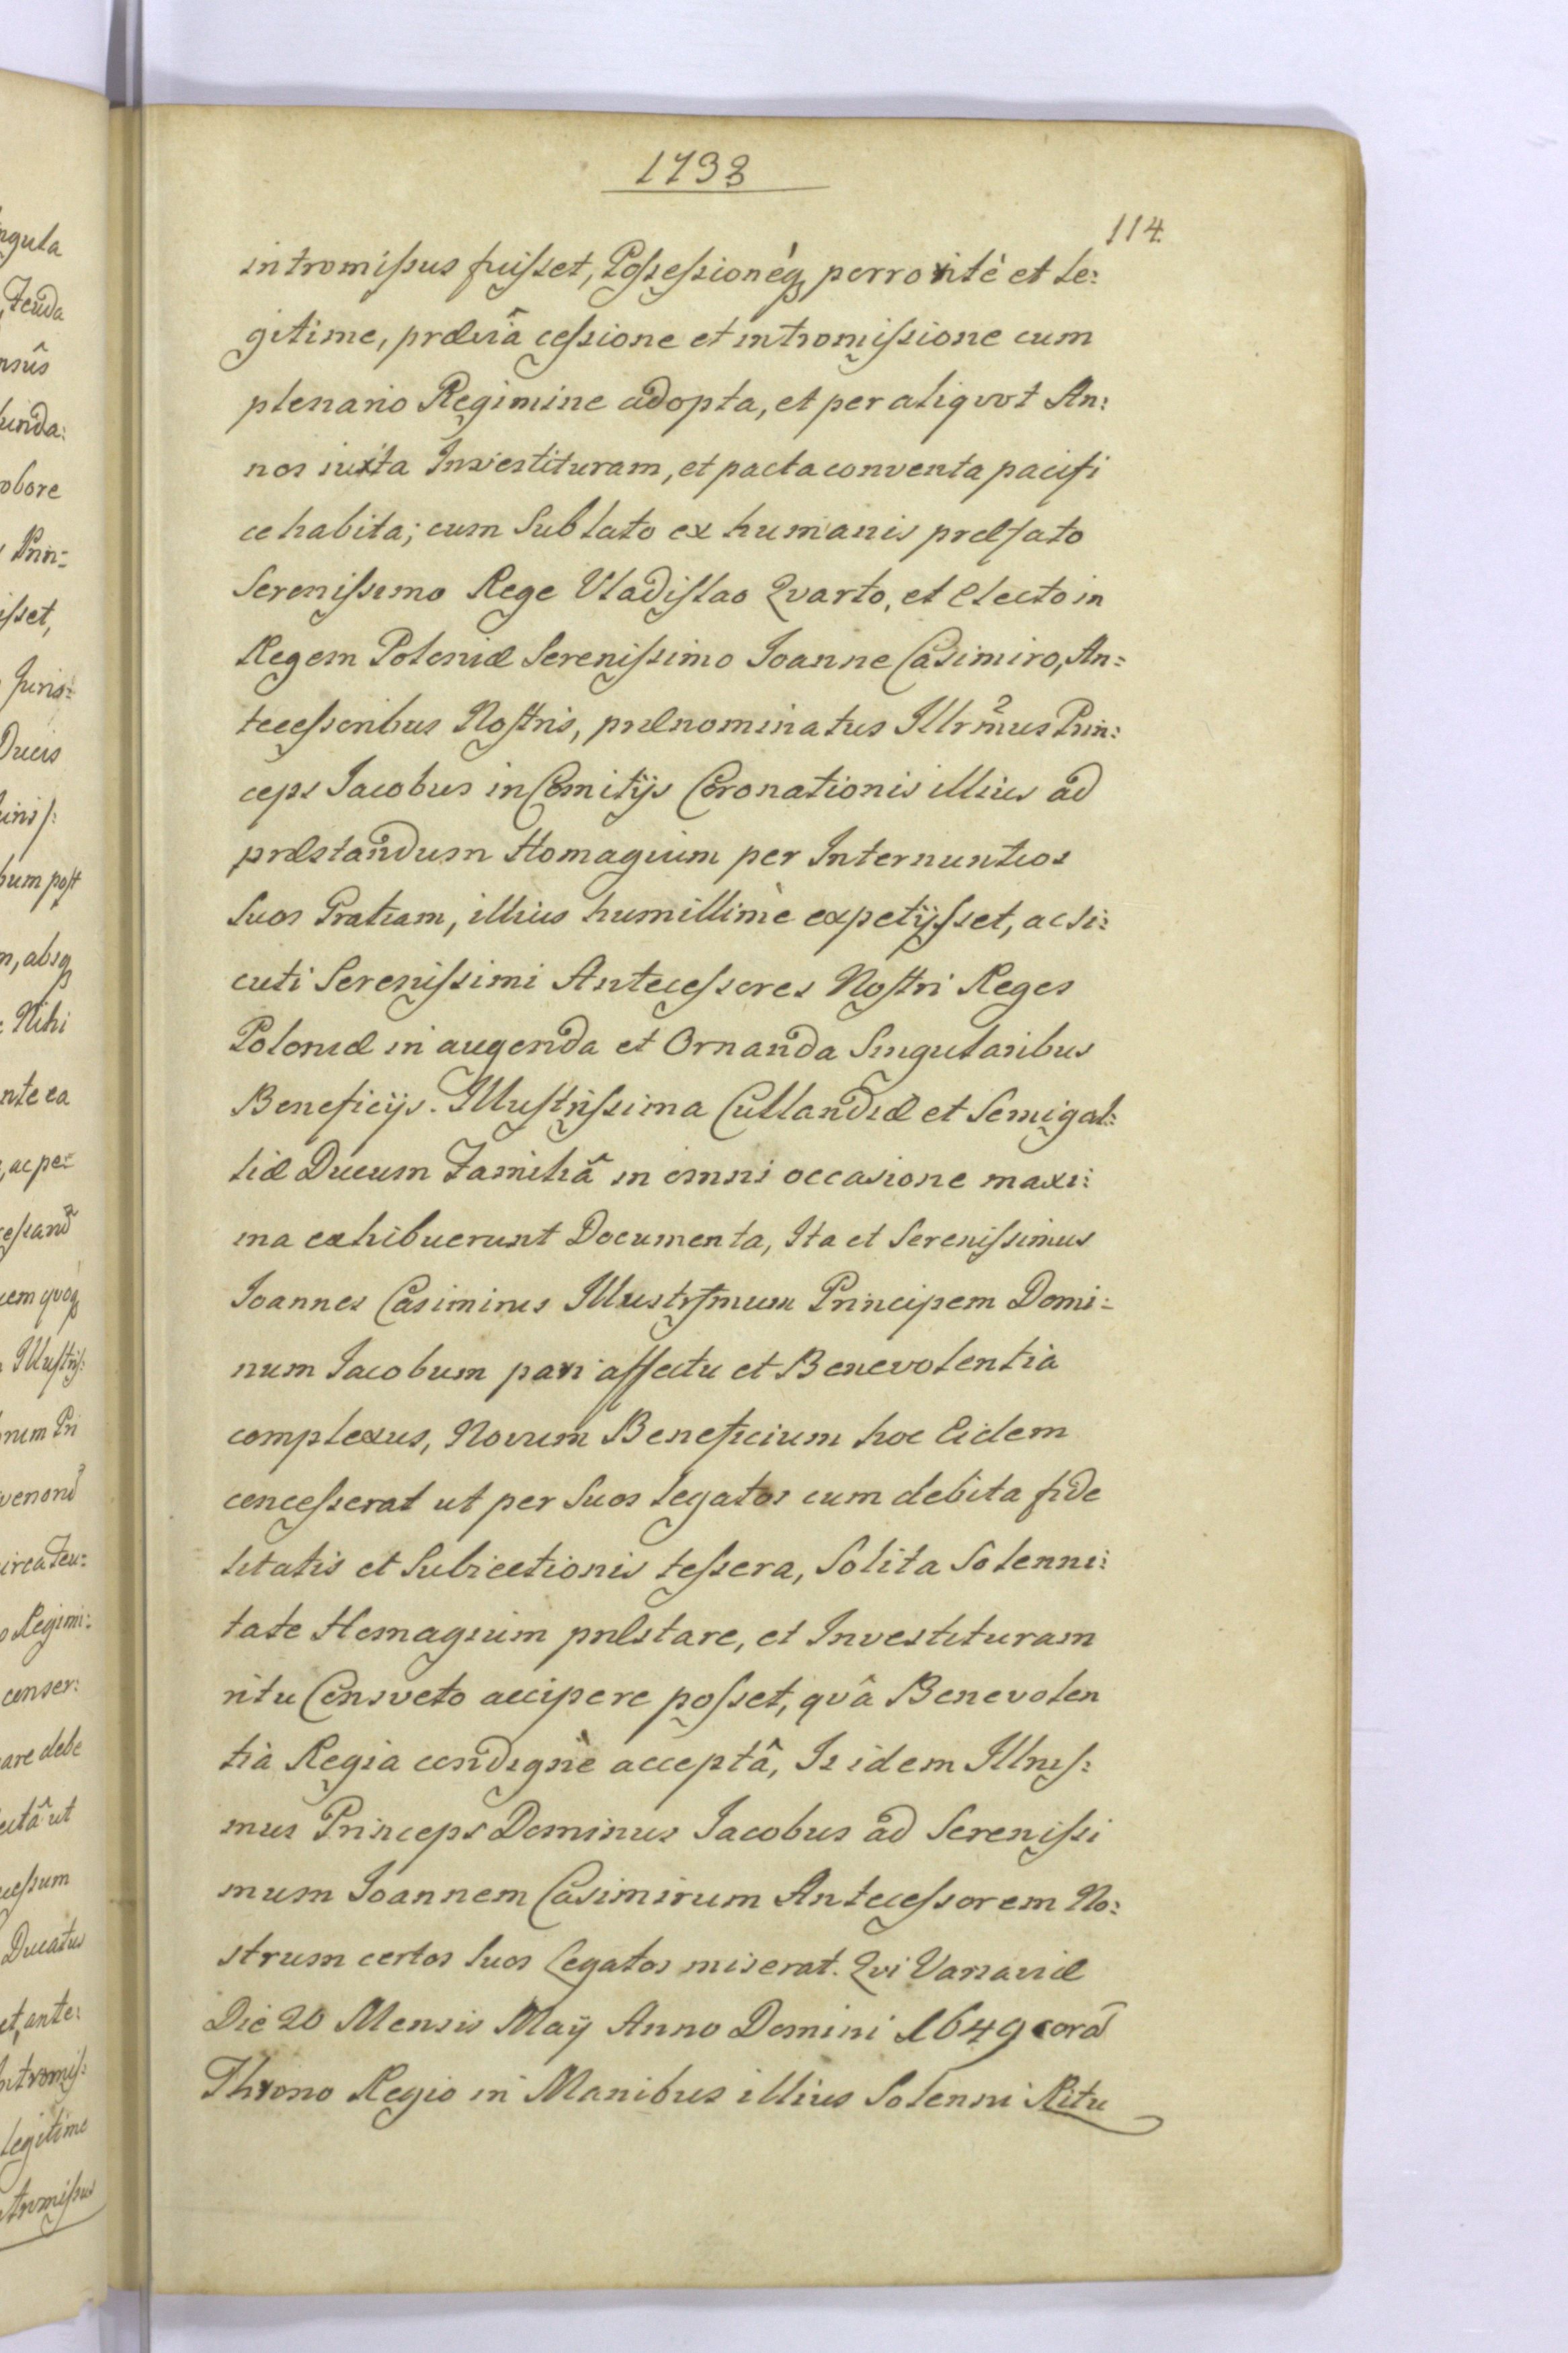 1738
114
intromissus fuisset, Possessioneq́ porro ritè et le:
gitime, præviâ cessione et intromissione cum
plenario Regimine adopta, et per aliqvot An:
nos iuxta Investituram, et pacta conventa pacifi
ce habita; cum Sublato ex humanis præfato
Serenissimo Rege Vladislao Qvarto, et Electo in
Regem Poloniæ Serenissimo Joanne Casimiro, An:
tecessoribus Nostris, prænominatus Illrm̃us Prin:
ceps Jacobus in Comitijs Coronationis illius ad
præstandum Homagium per Internuntios
Suos Gratiam, illius humillimè expetijsset, ac si:
cuti Serenissimi Antecessores Nostri Reges
Poloniæ in augenda et Ornanda Singularibus
Beneficijs. Illustrissima Cullandiæ et Semigal:
liæ Ducum Familiâ in omni occasione maxi:
ma exhibuerunt Documenta, Ita et Serenissimus
Joannes Casimirus Illustrs̃mum Principem Domi:
num Jacobum pari affectu et Benevolentia
complexus, Novum Beneficium hoc Eidem
concesserat ut per Suos Legatos cum debita fide
litatis et Subiectionis tessera, Solita Solenni:
tate Homagium præstare, et Investituram
ritu Consveto accipere posset, qvâ Benevolen
tià Regia condignè acceptâ, Is idem Illris:
mus Princeps Dominus Jacobus ad Serenissi
mum Joannem Casimirum Antecessorem No:
strum certos Suos Legatos miserat. Qvi Varsaviæ
Die 20 Mensis Maÿ Anno Domini 1649 corã
Throno Regio in Manibus illius Solenni Ritu